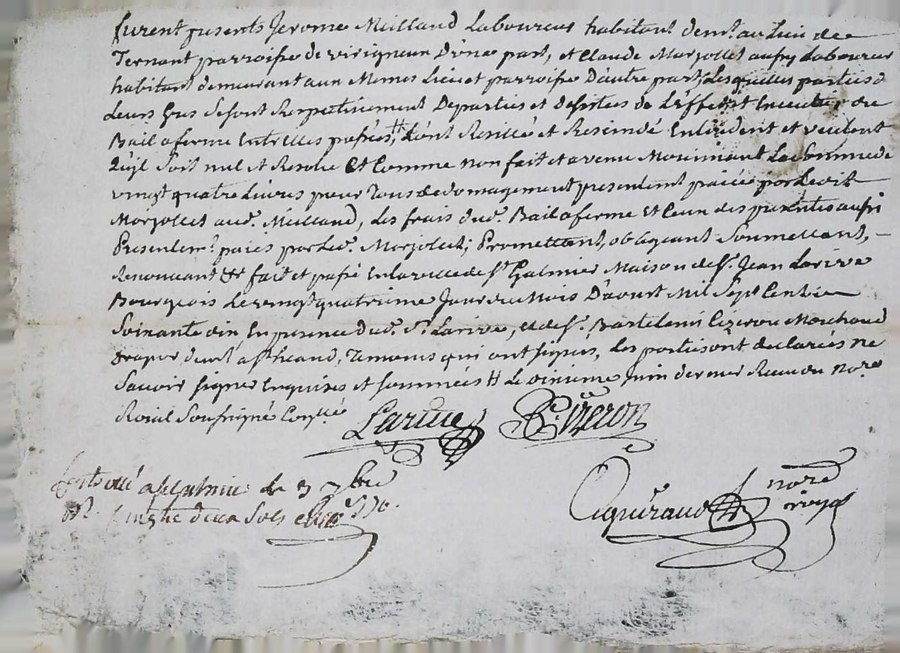 furent presents Jerome Meilland Laboureur habitant dem.t au lieu de
Ternant parroisse de virigneux D'une part, et Claude Marjollet aussy Laboureur
habitant demeurant aux Memes Lieu et parroisse D'autre part, Lesquelles parties de
Leurs Grés se sont Respectivement Departies et desistées de L'effet et Execution du
Bail a ferme Entr'elles passé # L'ont Resillié et Rescindé Entendent et veulent
Qu'il soit nul et Resolu Et Comme non fait et avenu Moiennant La somme de
vingt quatre Livres pour Tous dedomagement presentem.t paiée par Ledit
Marjollet aud.t Meilland, Les frais dud.t Bail a ferme Et Ceux des presentes aussi
Presentem.t paiés par Led.t Marjollet; Promettant, obligeant Soumettant,
Renonçant &c fait et passé En la ville de S.t Galmier Maison de S.r Jean Larive
Bourgeois Le vingt quatrieme Jour du Mois D'aoust Mil Sept Cent
Soixante dix En presence dud.t S.r Larive, et de S.r Bartelemi Cizeron Marchand
drapier dem.t a Temoins qui ont signés, Les parties ont declarées ne
Savoir signer Enquises et sommées # Le dixieme Juin dernier Reçu du No.re
Roial Soussigné
Larive B. Cizeron
a S.t Galmier le 3 7bre
1770. no.re
R.s deux sols royal